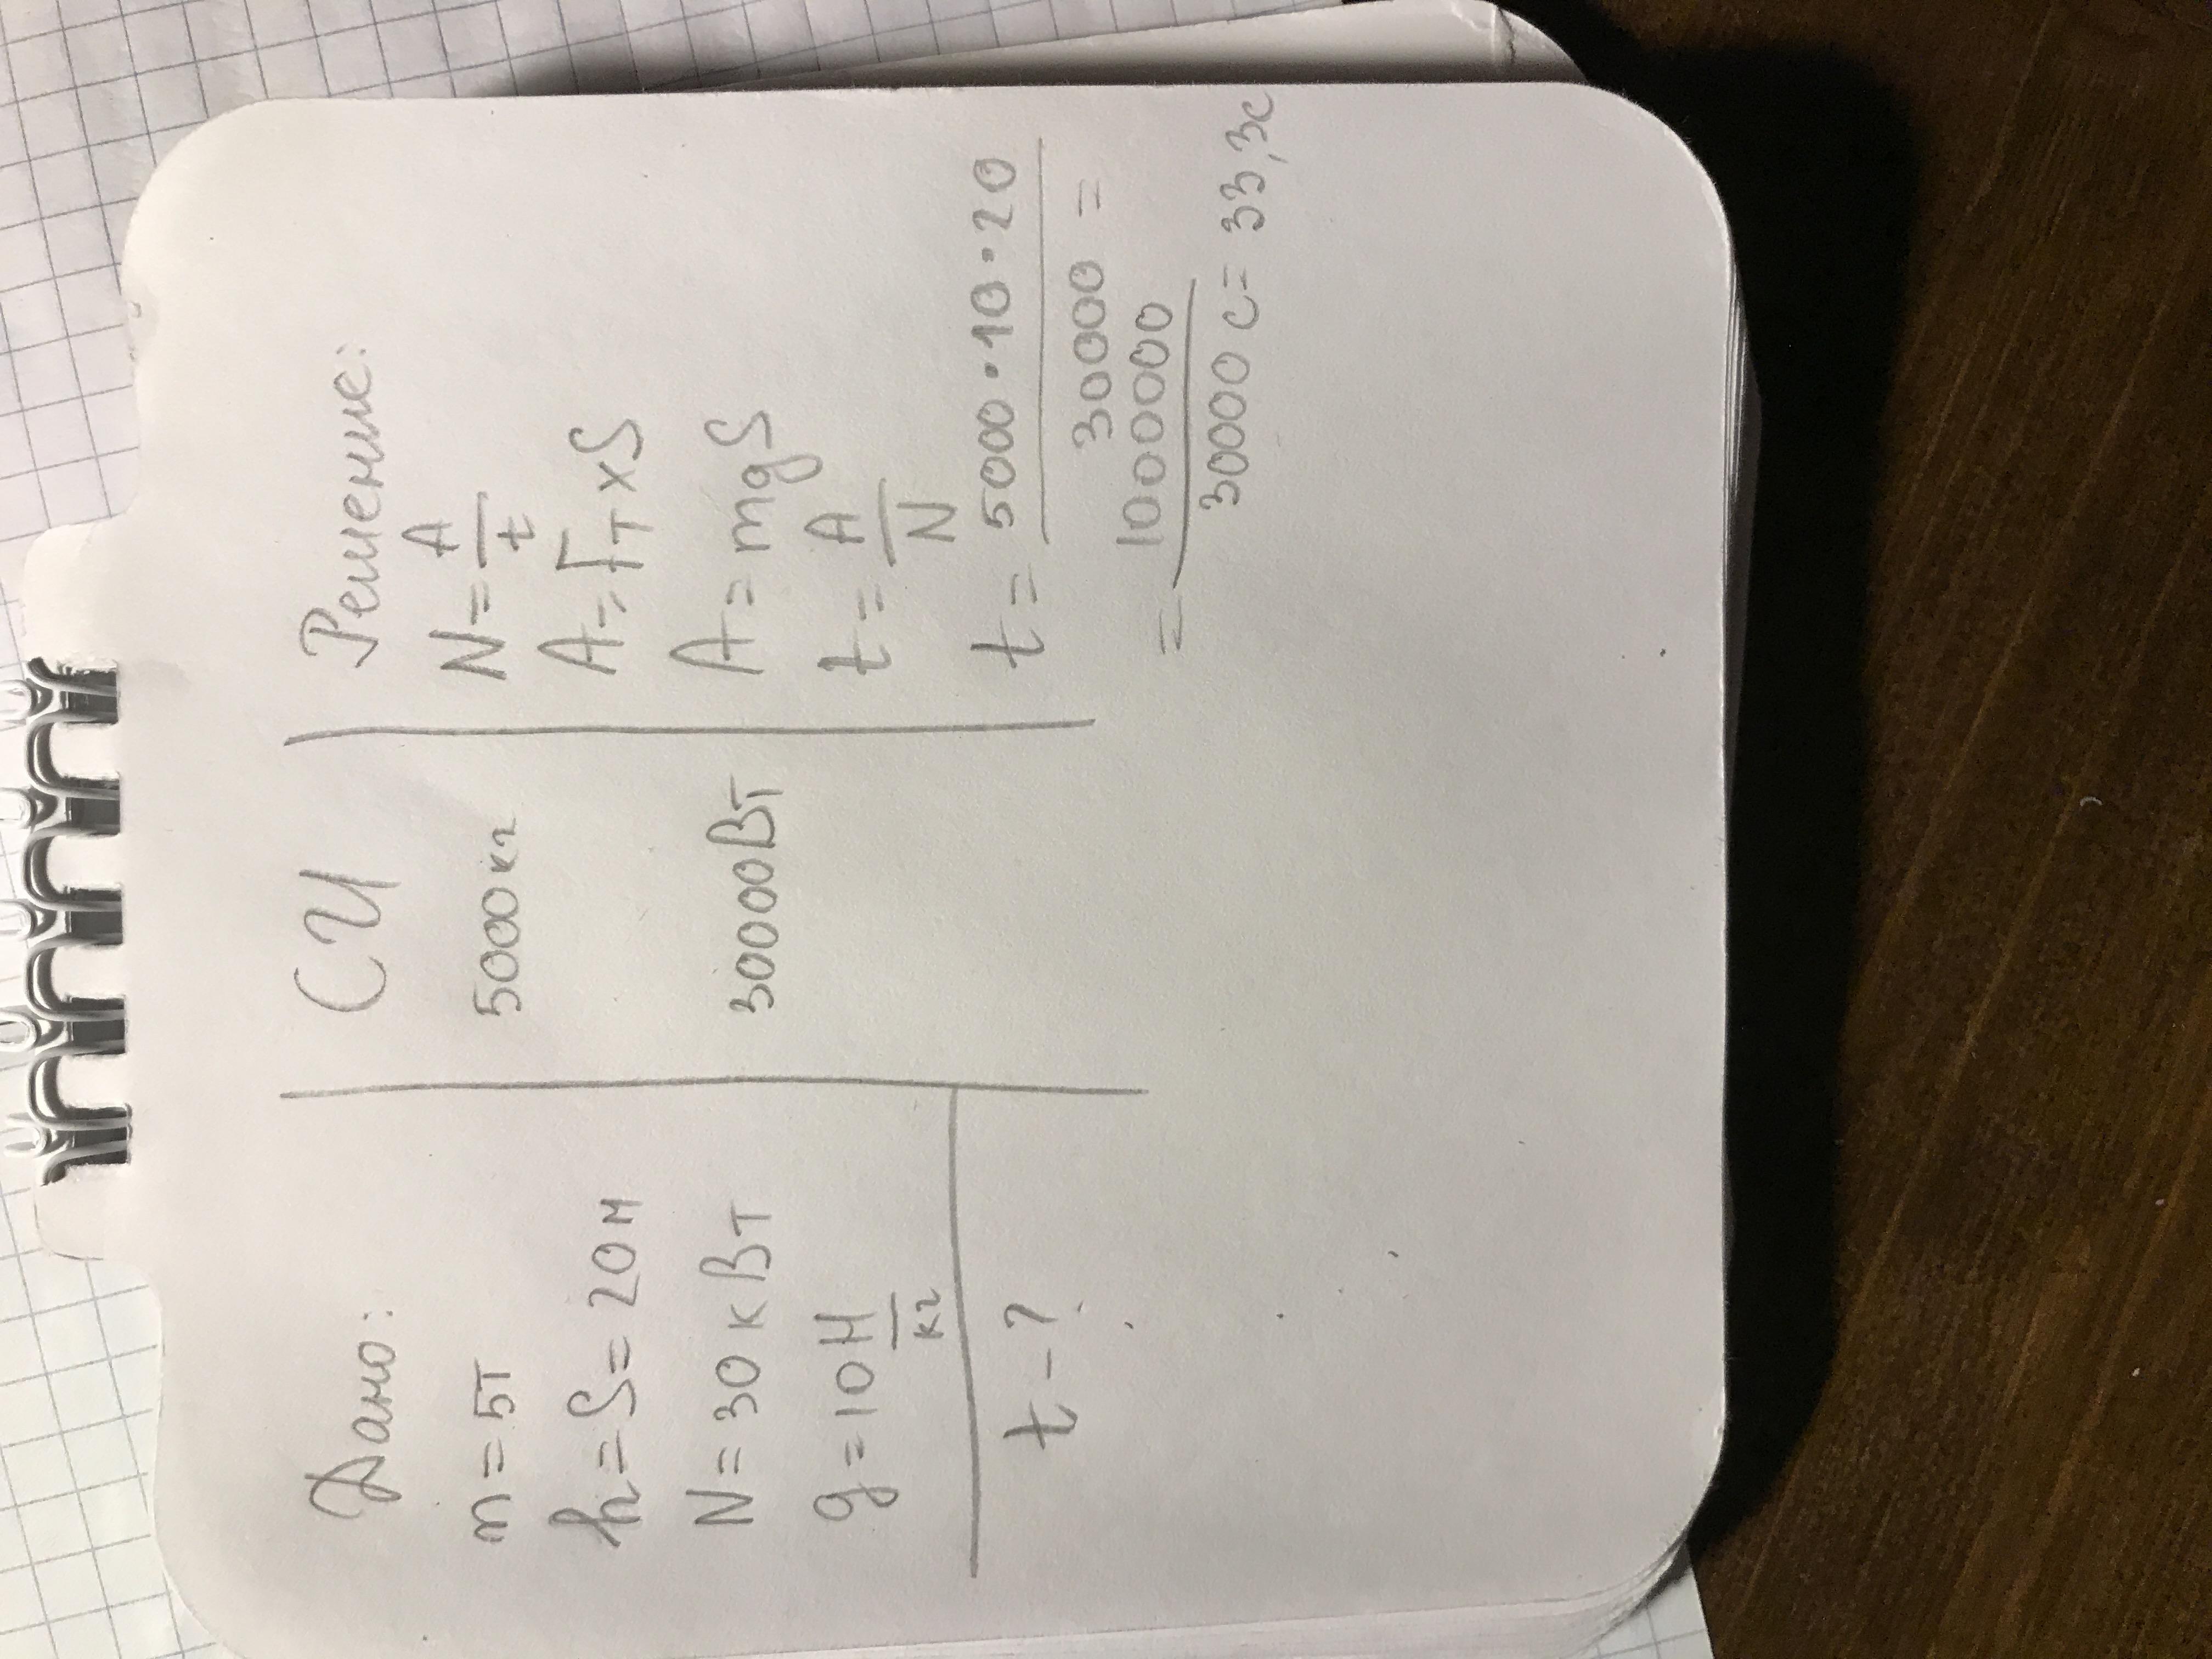 Дано:
m = 5т
h = S = 20м
N = 30 кВт
g = 10 Н/кг
t - ?
СИ
5000 кг
30000 Вт
Решение:
N = A/t
A = Fт x S
A = mgS
t = A/N
t = 5000 · 10 · 20 / 30000 =
= 1000000 / 30000 с = 33,3с